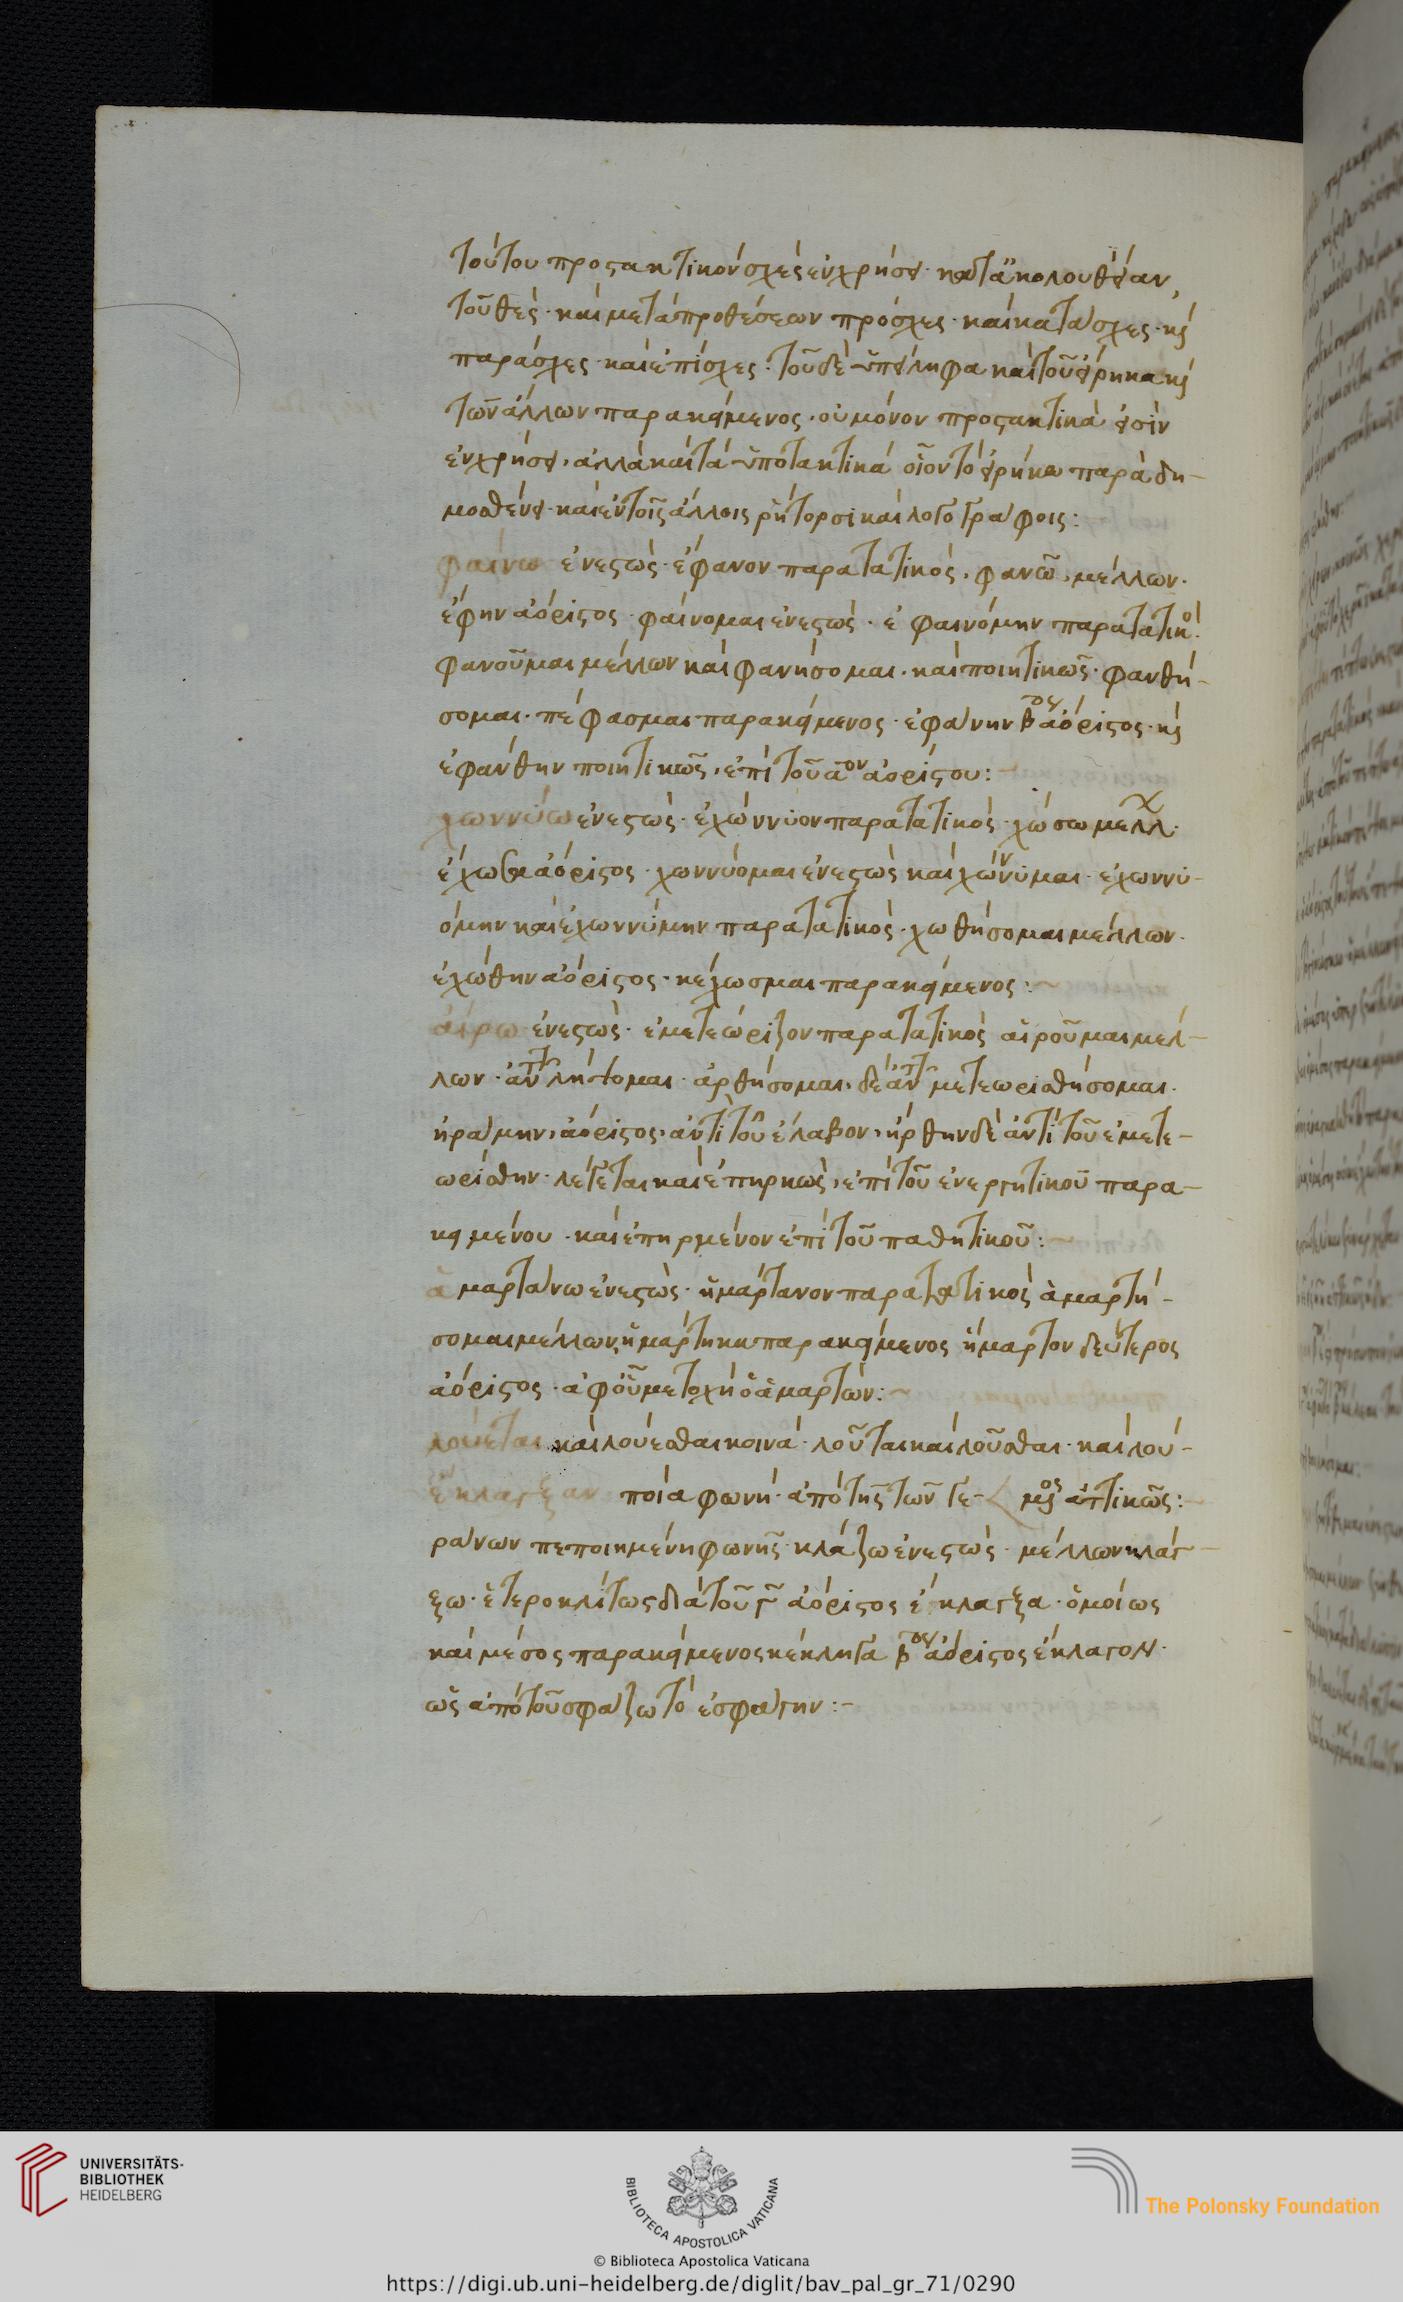 τούτου προστακτικὸν σχὲς ἐν χρήσει· κατὰ ἀκολουθείαν
τοῦ θές· καὶ μετὰ προθέσεων πρόσχες· καὶ κατάσχες· κ
παράσχες· καὶ ἐπίσχες· τοῦ δὲ ὑπείληφα καὶ τοῦ εἴρηκα κ
τῶν ἄλλων παρακείμενος· οὐ μόνον προστακτικὰ εἰσὶν
ἐν χρήσει, ἀλλὰ καὶ τὰ ὑποτακτικὰ οἷον τὸ εἰρήκω παρὰ δη-
μοσθένει· καὶ ἐν τοῖς ἄλλοις ῥήτορσι καὶ λογογράφοις:
φαίνω ἐνεστώς· ἔφανον παρατατικός· φανῶ, μέλλων·
ἔφην ἀόριστος· φαίνομαι ἐνεστώς· ἐφαινόμην παρατατικο
φανοῦμαι μέλλων καὶ φανήσομαι· καὶ ποιητικῶς· φανθή-
σομαι· πέφασμαι παρακείμενος· ἐφάνην β ἀόριστος· κ
ἐφάνθην ποιητικῶς, ἐπὶ τοῦ α ἀορίστου:
χωννύω ἐνεστώς· ἐχώννυον παρατατικός· χώσω μελλ·
ἔχωσα ἀόριστος· χωννύομαι ἐνεστὼς καὶ χώννυμαι· ἐχωννυ-
όμην καὶ ἐχωννύμην παρατατικός· χωθήσομαι μέλλων·
ἐχώθην ἀόριστος· κέχωσμαι παρακείμενος:
αἴρω ἐνεστώς· ἐμετεώριζον παρατατικὸς αἰροῦμαι μέλ-
λων· ἀντ λήψομαι· ἀρθήσομαι, δὲ ἀντ μετεωρισθήσομαι·
ἠράμην, ἀόριστος, ἀντὶ τοῦ ἔλαβον, ἤρθην δὲ ἀντὶ τοῦ ἐμετε-
ωρίσθην· λέγεται καὶ ἐπηρκώς, ἐπὶ τοῦ ἐνεργητικοῦ παρα-
κειμένου· καὶ ἐπηρμένον ἐπὶ τοῦ παθητικοῦ:
ἁμαρτάνω ἐνεστώς· ἡμάρτανον παρατατικὸς ἁμαρτή-
σομαι μέλλων ἡμάρτηκα παρακείμενος ἥμαρτον δεύτερος
ἀόριστος· ἀφ' οὗ μετοχὴ ὁ ἁμαρτών:
λούεται καὶ λούεσθαι κοινά· λοῦται καὶ λοῦσθαι· καὶ λού-
ἔκλαγξαν ποία φωνή· ἀπὸ τῆς τῶν γε- μος ἀττικῶς:
ράνων πεποιημένη φωνῆς· κλάζω ἐνεστώς· μέλλων κλάγ
ξω· ἑτεροκλίτως διὰ τοῦ γ ἀόριστος ἔκλαγξα· ὁμοίως
καὶ μέσος παρακείμενος κέκληγα β ἀόριστος ἔκλαγον·
ὡς ἀπὸ τοῦ σφάζω τὸ ἐσφάγην:
UNIVERSITÄTS-
BIBLIOTHEK
HEIDELBERG
BIBLIOTECA APOSTOLICA VATICANA
The Polonsky Foundation
© Biblioteca Apostolica Vaticana
https://digi.ub.uni-heidelberg.de/diglit/bav_pal_gr_71/0290